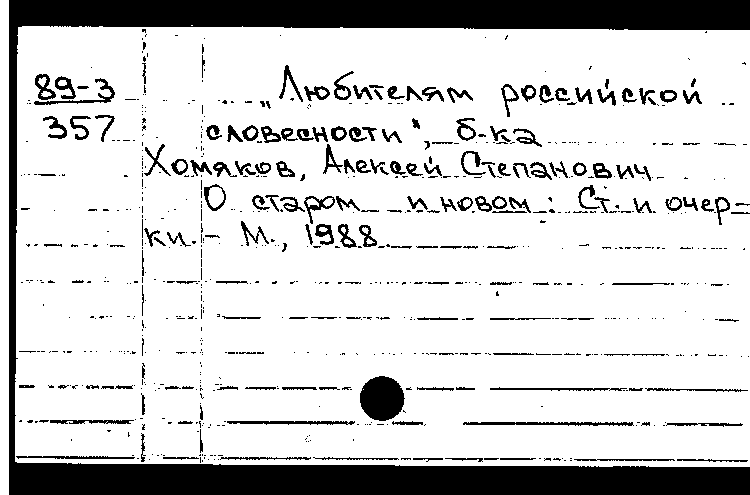 89-3 „Любителям российской
357 словесности", б-ка
Хомяков, Алексей Степанович
О старом и новом : Ст. и очер-
ки. – М., 1988.